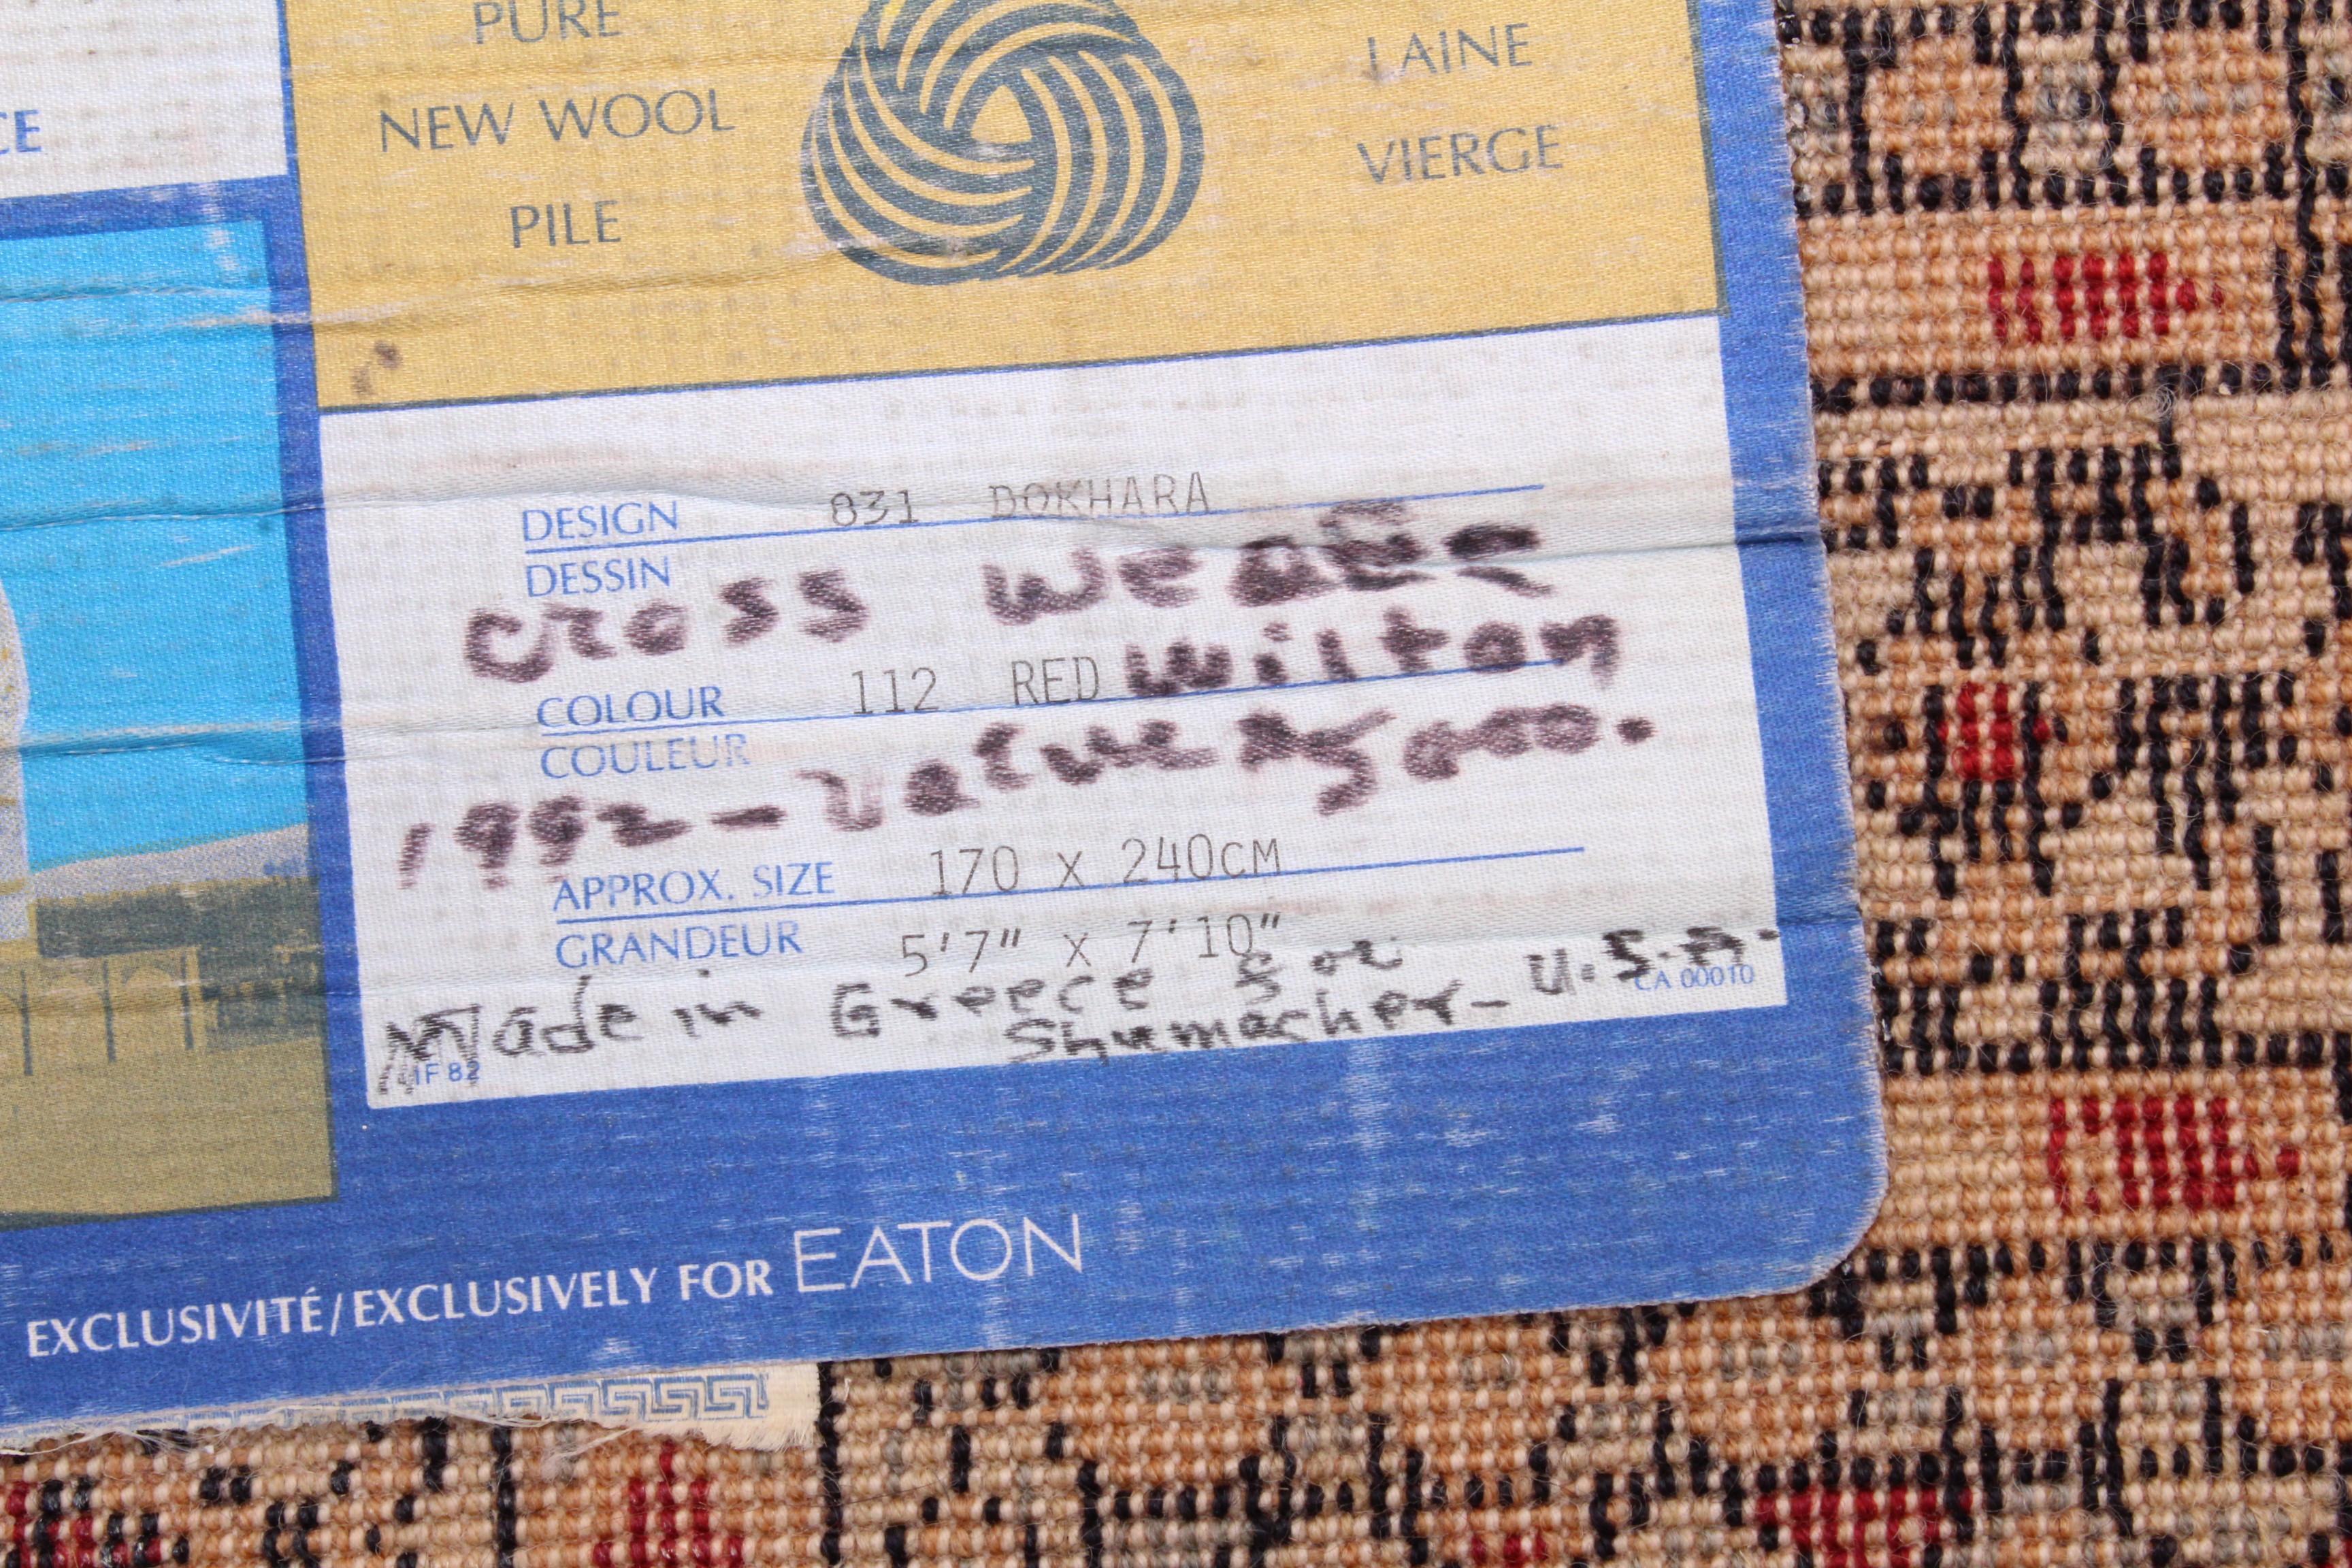 CE
PURE
NEW WOOL
PILE
LAINE
VIERGE
DESIGN 831 BOKHARA
DESSIN
cross weave
COLOUR 112 RED wilton
COULEUR
1992 - value
APPROX. SIZE 170 x 240CM
GRANDEUR 5'7" x 7'10"
Made in Greece for
Shumacher - U.S.A.
CA 00010
IF 82
EXCLUSIVITÉ/EXCLUSIVELY FOR EATON